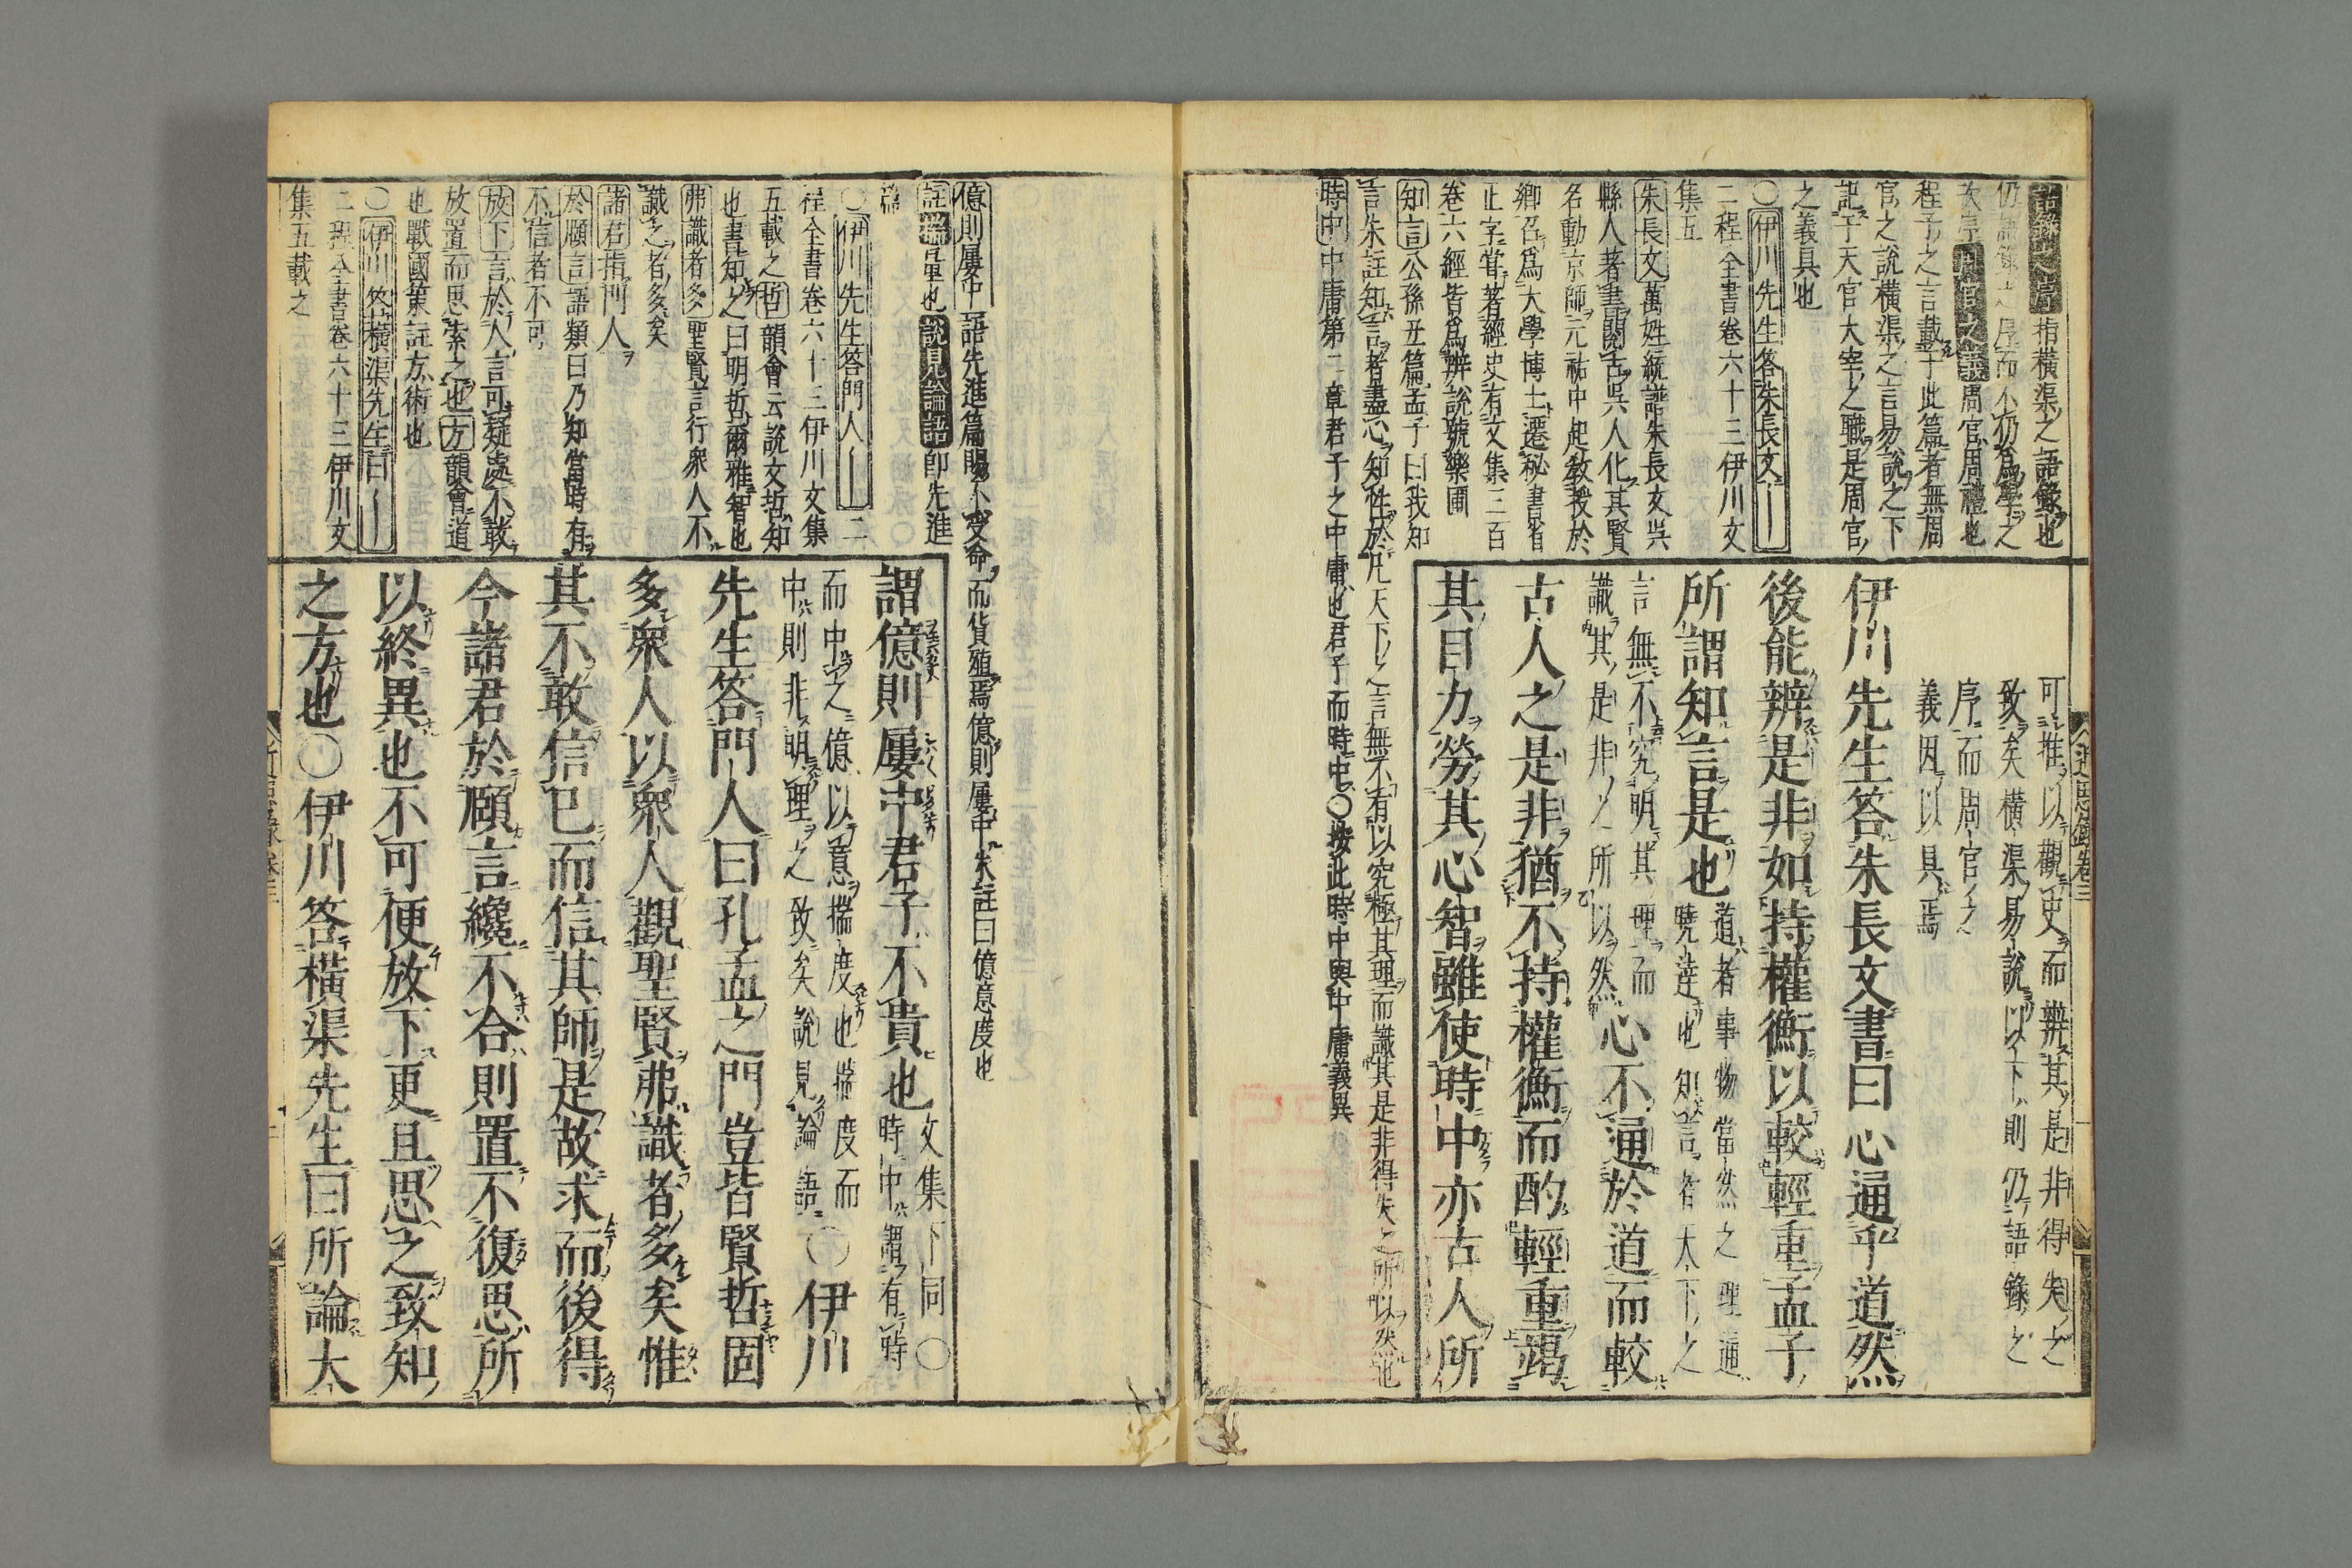 語錄之序指橫渠之語錄也
仍語錄之序而不仍爲學之
次序周官之義周官周禮也
程子之言載于此篇者無周
官之說橫渠之言易說之下
記于天官大宰之職是周官
之義具也
〇伊川先生答朱長文
二程全書卷六十三伊川文
集五
朱長文萬姓統譜朱長文呉
縣人著書閱古呉人化其賢
名動京師元祐中起敎授於
鄕召爲大學博士遷秘書省
正字嘗著經史有文集三百
卷六經皆爲辨說號樂圃
知言公孫丑篇孟子曰我知
言朱註知言者盡心知性於凡天下之言無不有以究極其理而識其是非得失之所以然也
時中中庸第二章君子之中庸也君子而時中〇按此時中與中庸義異
可推以觀史而辨其是非得失之
致矣橫渠易說以下則仍語錄之
序而周官之
義因以具焉
伊川先生答朱長文書曰心通乎道然
後能辨是非如持權衡以較輕重孟子
所謂知言是也道者事物當然之理通
曉達也知言者天下之
言無不究明其理而
識其是非之所以然心不通於道而較
古人之是非猶不持權衡而酌輕重竭
其目力勞其心智雖使時中亦古人所
近思錄卷三
億則屢中語先進篇賜不受命而貨殖焉億則屢中朱註曰億意度也
註揣音軍也說見論語卽先進
篇
〇伊川先生答門人二
程全書卷六十三伊川文集
五載之哲韻會云說文哲知
也書知之曰明哲爾雅智也
弗識者多聖賢言行衆人不
識之者多矣
諸君指門人
於願言語類曰乃知當時有
不信者不可
放下言於人言可疑處不敢
放置而思索之也方韻會道
也戰國策註方術也
〇伊川答橫渠先生曰
二程全書卷六十三伊川文
集五載之
謂億則屢中君子不貴也文集下同〇
時中謂有時
而中之億以意揣度也揣度而
中則非明理之致矣說見論語〇伊川
先生答門人曰孔孟之門豈皆賢哲固
多衆人以衆人觀聖賢弗識者多矣惟
其不敢信己而信其師是故求而後得
今諸君於願言纔不合則置不復思所
以終異也不可便放下更且思之致知
之方也〇伊川答橫渠先生曰所論大